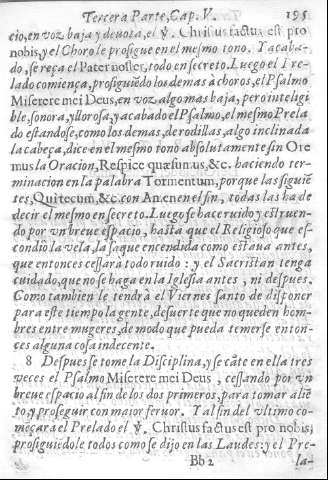 Tercera Parte, Cap. V. 195
cio, en voz baja y devota, el ℣. Christus factus est pro
nobis, y el Choro le prosigue en el mesmo tono. Y acaba-
do, se reça el Pater noster, todo en secreto. Luego el Pre-
lado comiença, prosiguiẽdo los demas à choros, el Psalmo
Miserere mei Deus, en voz algo mas baja, pero inteligi
ble, sonora, y llorosa, y acabado el Psalmo, el mesmo Prela
do estandose, como los demas, de rodillas, algo inclinada
la cabeça, dice en el mesmo tono absolutamente sin Ore
mus la Oracion, Respice quæsumus, &c. haciendo ter-
minacion en la palabra Tormentum, porque las siguiẽ
tes, Qui tecum, &c. con Amen en el fin, todas las ha de
decir el mesmo en secreto. Luego se hace ruido y estruen-
do por vn breve espacio, hasta que el Religioso que es-
condiò la vela, la saque encendida como estaua antes,
que entonces cessarà todo ruido: y el Sacristan tenga
cuidado, que no se haga en la Iglesia antes, ni despues.
Como tambien le tendrà el Viernes santo de disponer
para este tiempo la gente, de suerte que no queden hom-
bres entre mugeres, de modo que pueda temerse enton-
ces alguna cosa indecente.
8 Despues se tome la Disciplina, y se cãte en ella tres
veces el Psalmo Miserere mei Deus, cessando por vn
breve espacio al fin de los dos primeros, para tomar aliẽ
to, y proseguir con maior feruor. Y al fin del vltimo co-
mẽçara el Prelado el ℣. Christus factus est pro nobis,
prosiguiẽdole todos como se dijo en las Laudes: y el Pre-
Bb 2 la-